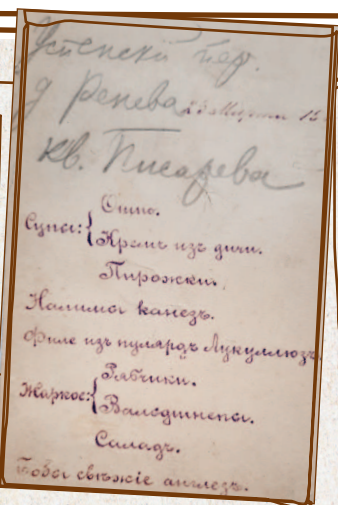 Успенскій пер.
д Ренева 23 Марта
кв. Писарева
Супы: { Очио.
Кремъ изъ дичи.
Пирожки.
Налимы канезъ.
Филе изъ пулярдъ Лукуллюзъ
Жаркое: { Рябчики.
Вальдшнепы.
Салатъ.
Бобы свѣжіе англезъ.